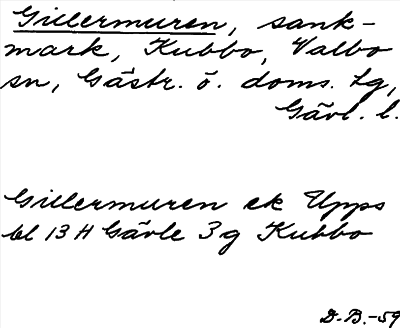 Gillermuren, sank-
mark, Kubbo, Valbo
sn, Gästr. ö. doms. tg,
Gävl. l.
Gillermuren ek Upps
bl 13 H Gävle 3 g Kubbo
D.B.-59